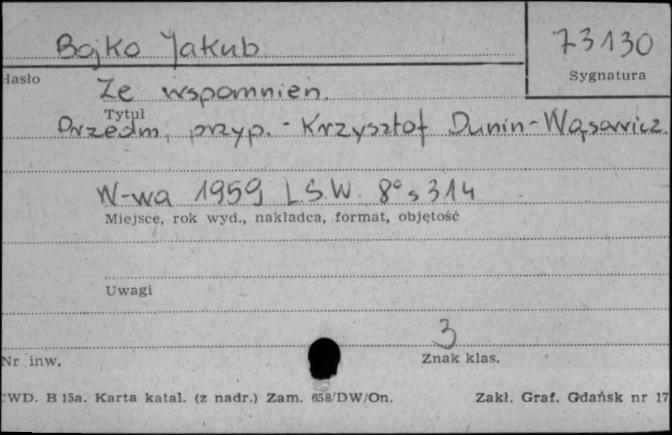 Bojko Jakub
73130
Hasło
Sygnatura
Ze wspomnień.
Tytuł
Przedm, przyp. - Krzysztof Dunin-Wąsowicz.
W-wa 1959 LSW. 8° s 314
Miejsce, rok wyd., nakładca, format, objętość
Uwagi
3
Nr inw.
Znak klas.
CWD. B 15a. Karta katal. (z nadr.) Zam. 658/DW/On.
Zakł. Graf. Gdańsk nr 17